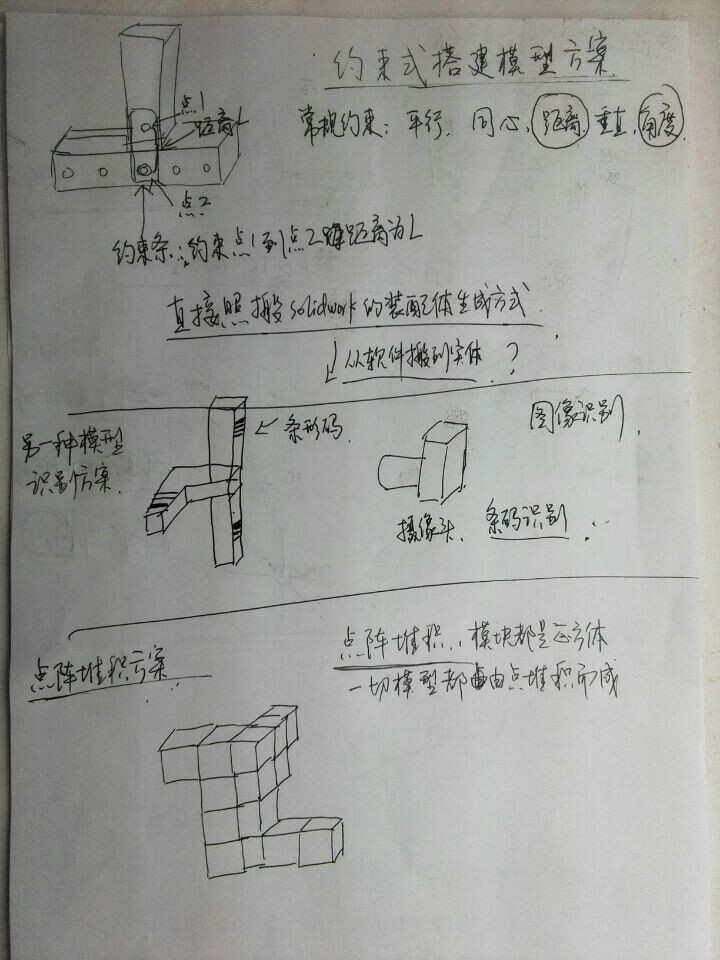 约束式搭建模型方案
点1
距离L
常规约束：平行、同心、距离、垂直、角度
点2
约束条：约束点1到点2距离为L
直接照搬solidwork的装配体生成方式.
从软件搬到实体 ？
另一种模型
识别方案.
条形码.
图像识别.
摄像头、条码识别.
点阵堆积方案
点阵堆积，模块都是正方体
一切模型都由点堆积而成